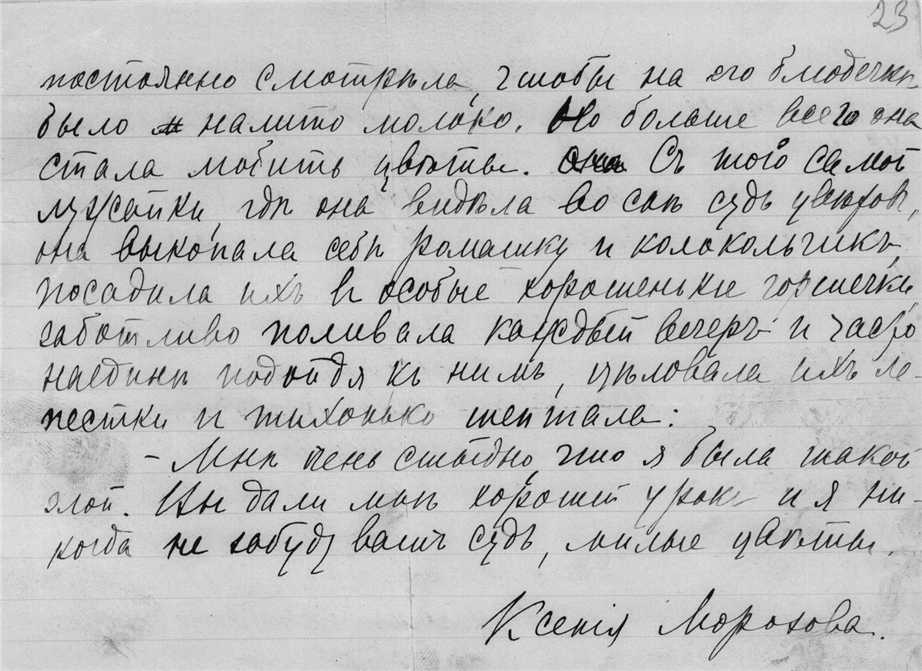 23
постоянно смотрѣла, чтобы на его блюдечкѣ
было налито молоко. Но больше всего она
стала любить цвѣты. Съ той самой
лужайки, гдѣ она видѣла во снѣ судъ цвѣтовъ,
она выкопала себѣ ромашку и колокольчикъ
посадила ихъ въ особые хорошенькіе горшечки,
заботливо поливала каждый вечеръ и часто
наединѣ подойдя къ нимъ, цѣловала ихъ ле-
пестки и тихонько шептала:
- Мнѣ очень стыдно, что я была такой
злой. Вы дали мнѣ хорошій урокъ и я ни
когда не забуду вашъ судъ, милые цвѣты.
Ксенія Морозова.